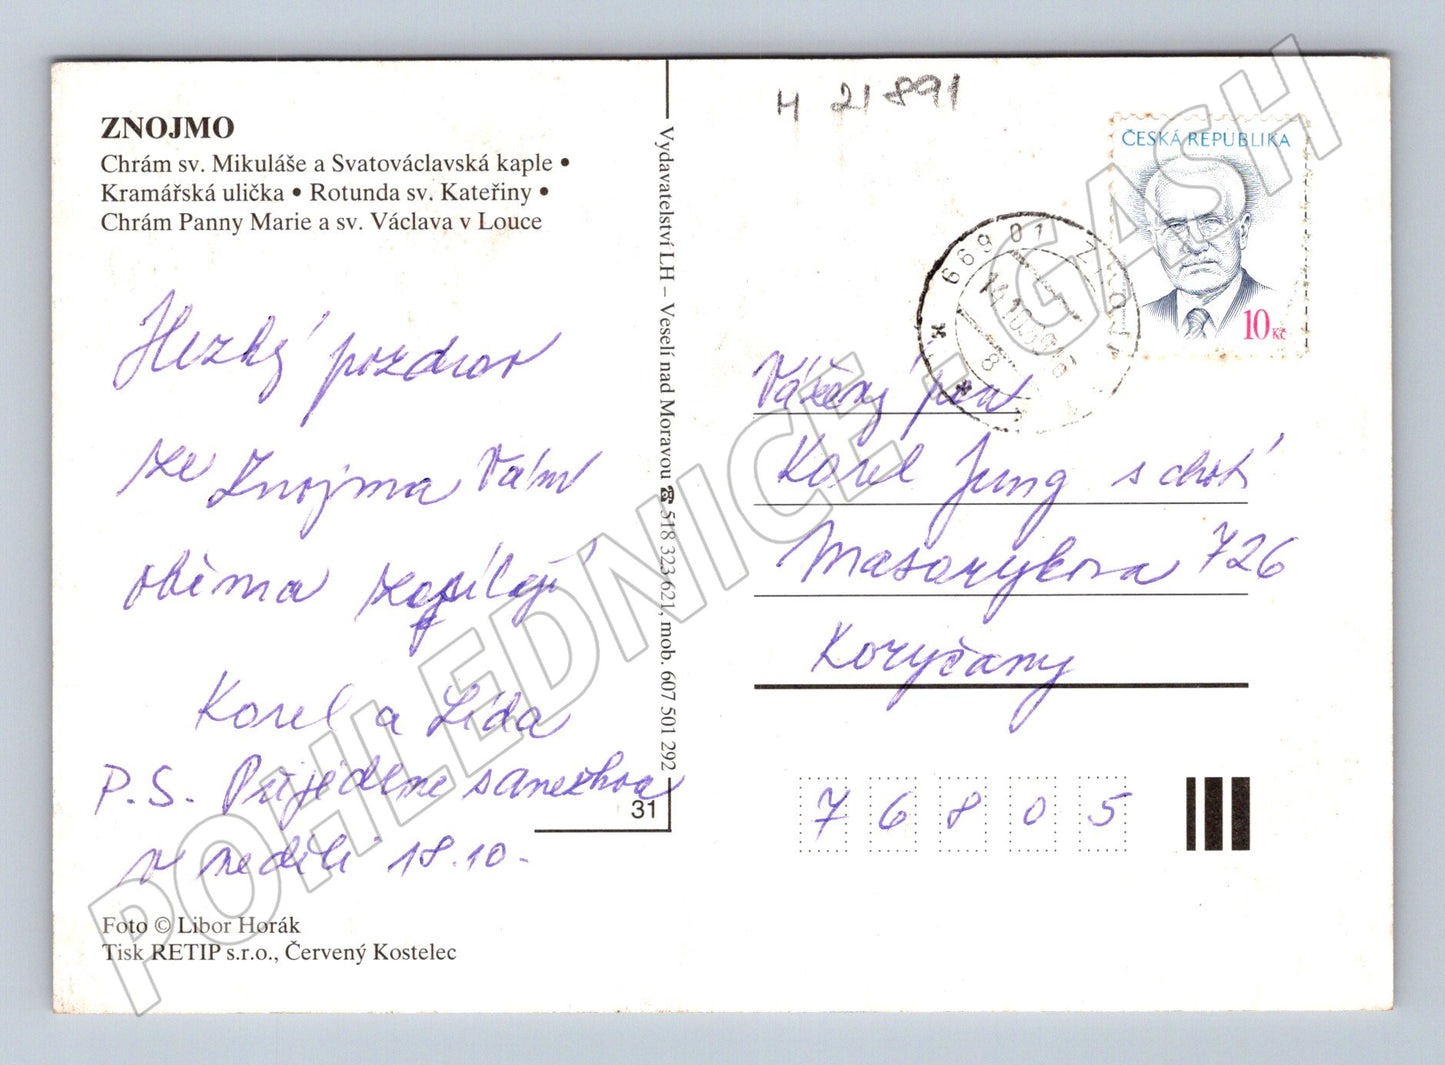 ZNOJMO
Chrám sv. Mikuláše a Svatováclavská kaple •
Kramářská ulička • Rotunda sv. Kateřiny •
Chrám Panny Marie a sv. Václava v Louce
Hezký pozdrav
ze Znojma Vám
oběma zasílají
Karel a Lída
P.S. Přijedeme
v neděli 18.10.
Foto © Libor Horák
Tisk RETIP s.r.o., Červený Kostelec
Vydavatelství LH – Veselí nad Moravou ☎ 518 323 621, mob. 607 501 292
31
H 21891
ČESKÁ REPUBLIKA
10 Kč
669 01 ZNOJMO
Vážený pan
Karel Jung s chotí
Masarykova 726
Koryčany
76805
POHLEDNICE - GASH